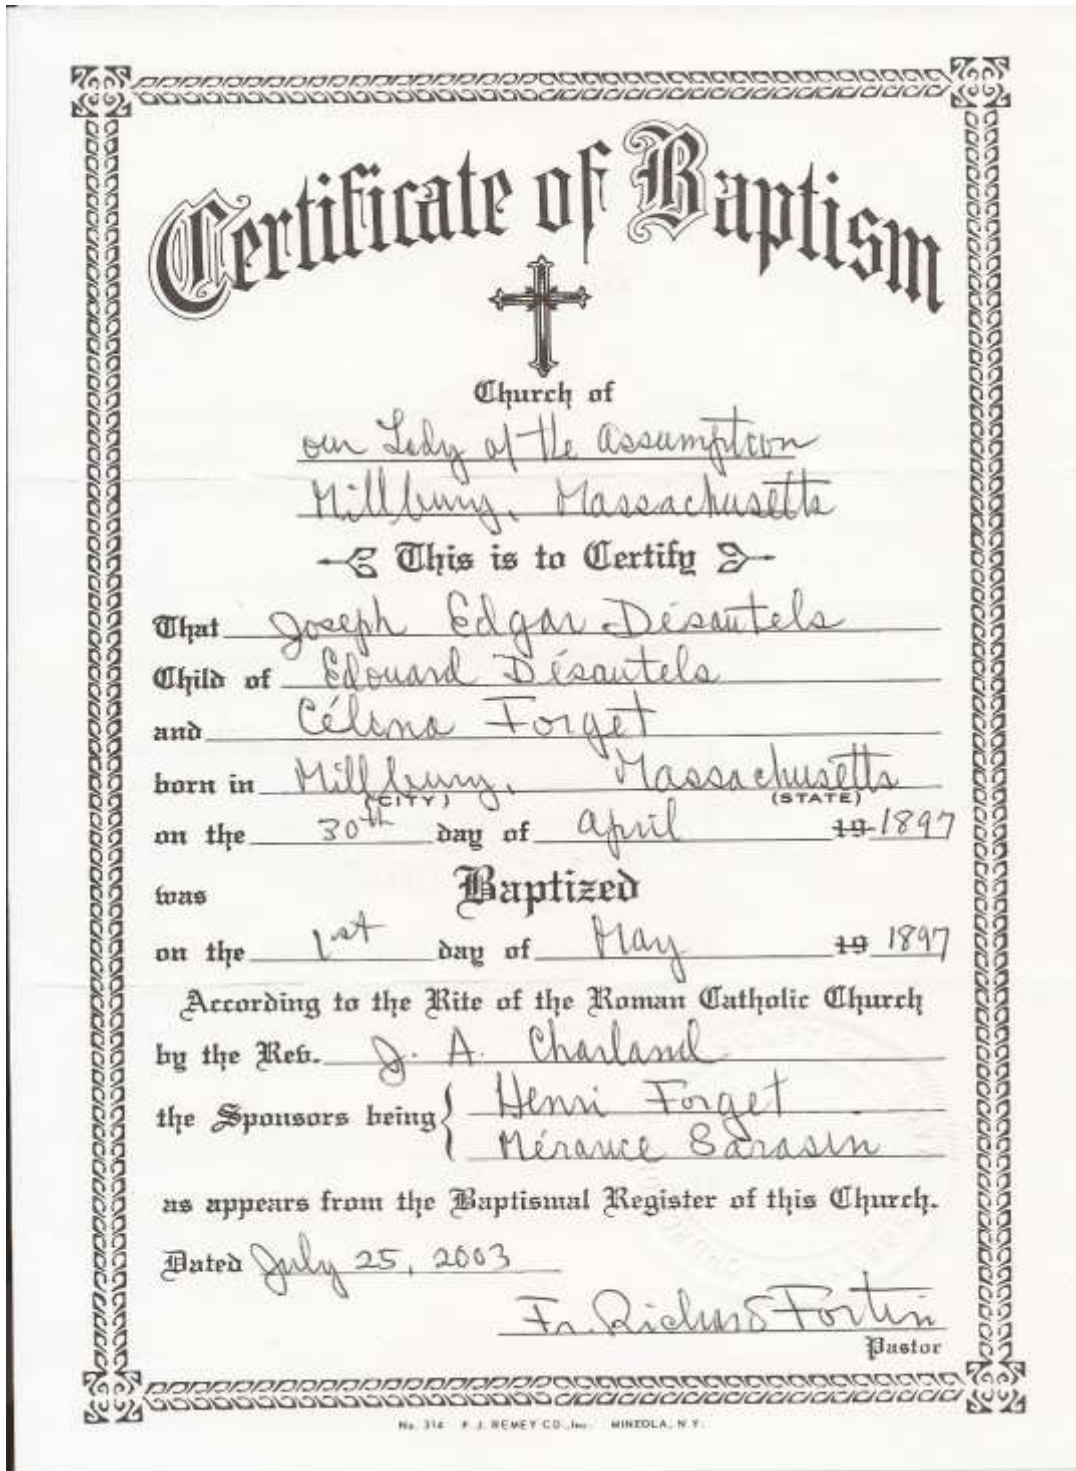 Certificate of Baptism
Church of
our Lady of the Assumption
Millbury, Massachusetts
This is to Certify
That Joseph Edgar Désautels
Child of Edouard Désautels
and Célina Forget
born in Millbury, Massachusetts
(CITY) (STATE)
on the 30th day of April 19 1897
was Baptized
on the 1st day of May 19 1897
According to the Rite of the Roman Catholic Church
by the Rev. J. A. Charland
the Sponsors being { Henri Forget
Mérance Sarasin
as appears from the Baptismal Register of this Church.
Dated July 25, 2003
Fr. Richard Fortin
Pastor
No. 314 F. J. REMEY CO., Inc. MINEOLA, N.Y.